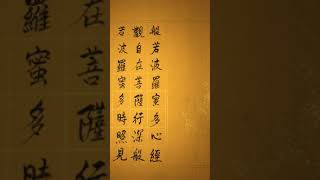 般若波羅蜜多心經
觀自在菩薩行深般
若波羅蜜多時照見
在菩薩行
羅蜜多時